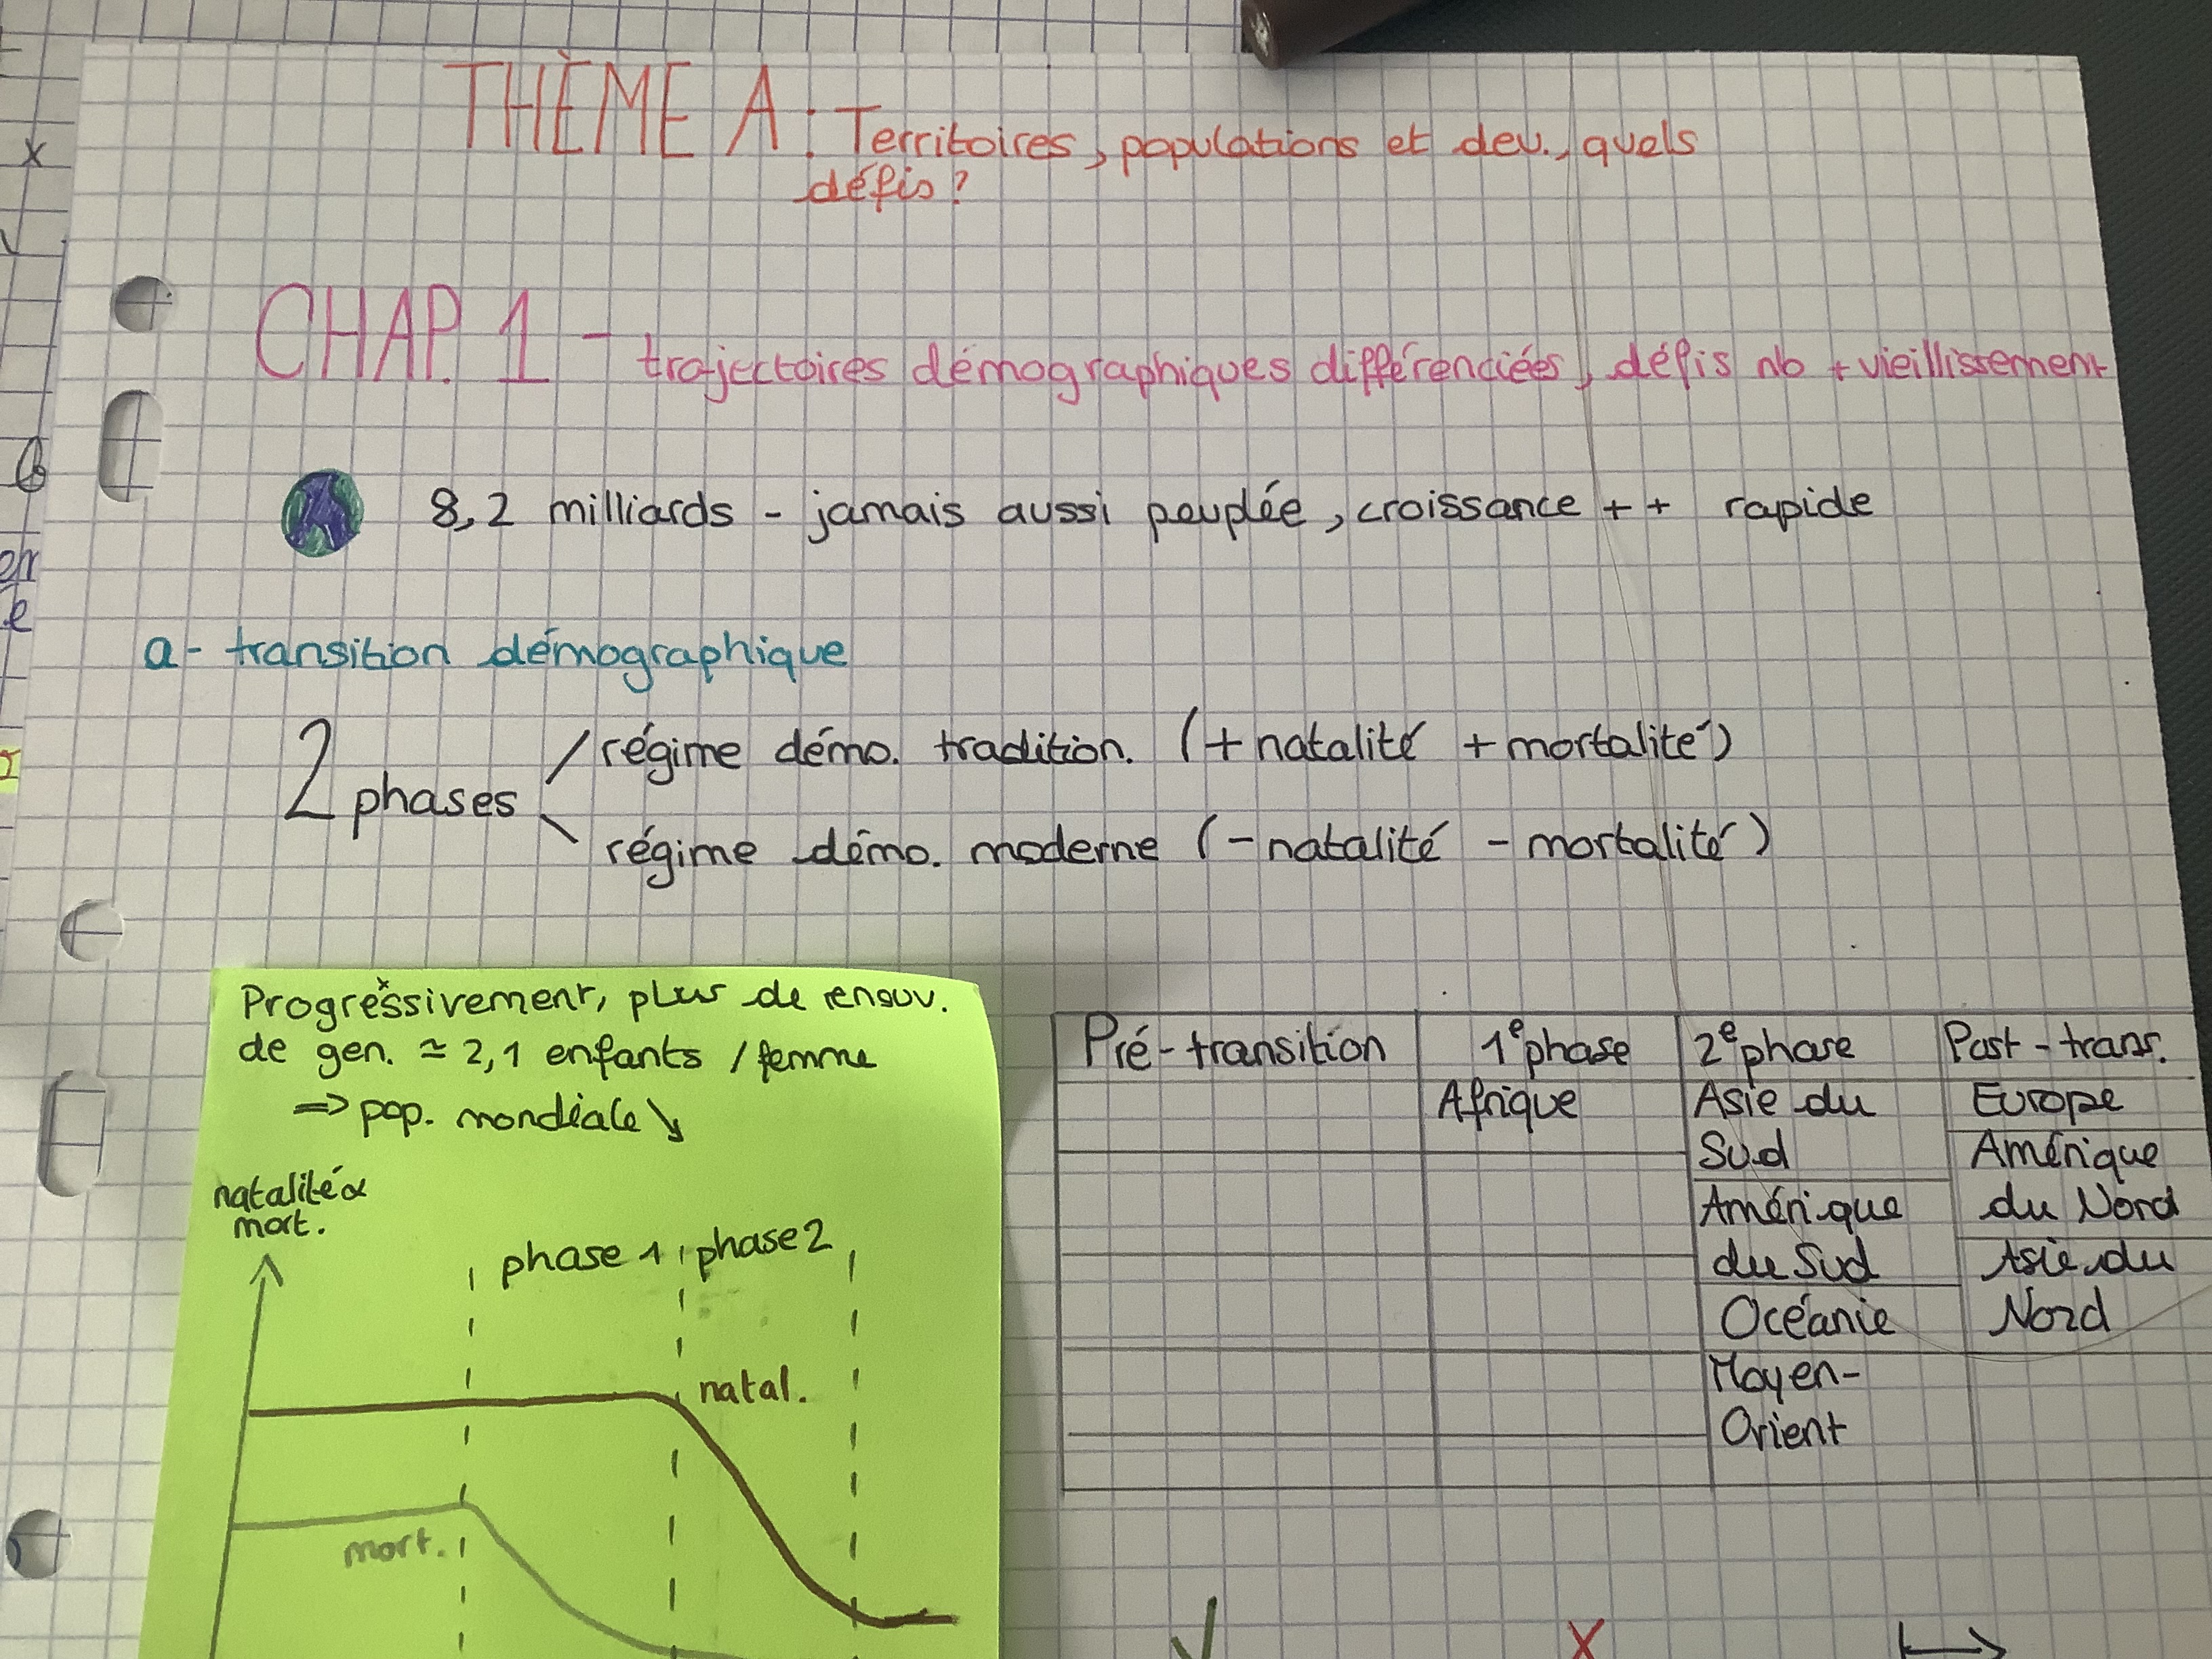 THÈME A : Territoires, populations et dev., quels
défis ?
CHAP. 1 - trajectoires démographiques différenciées, défis nb + vieillissement
8,2 milliards - jamais aussi peuplée, croissance ++ rapide
a- transition démographique
2 phases
/ régime démo. tradition. (+ natalité + mortalité)
\ régime démo. moderne (- natalité - mortalité)
Progressivement, plus de renouv.
de gen. ≃ 2,1 enfants / femme
=> pop. mondiale ↘
natalité &
mort.
phase 1 phase 2
natal.
mort.
Pré-transition 1e phase 2e phase Post-trans.
Afrique Asie du Europe
Sud Amérique
Amérique du Nord
du Sud Asie du
Océanie Nord
Moyen-
Orient